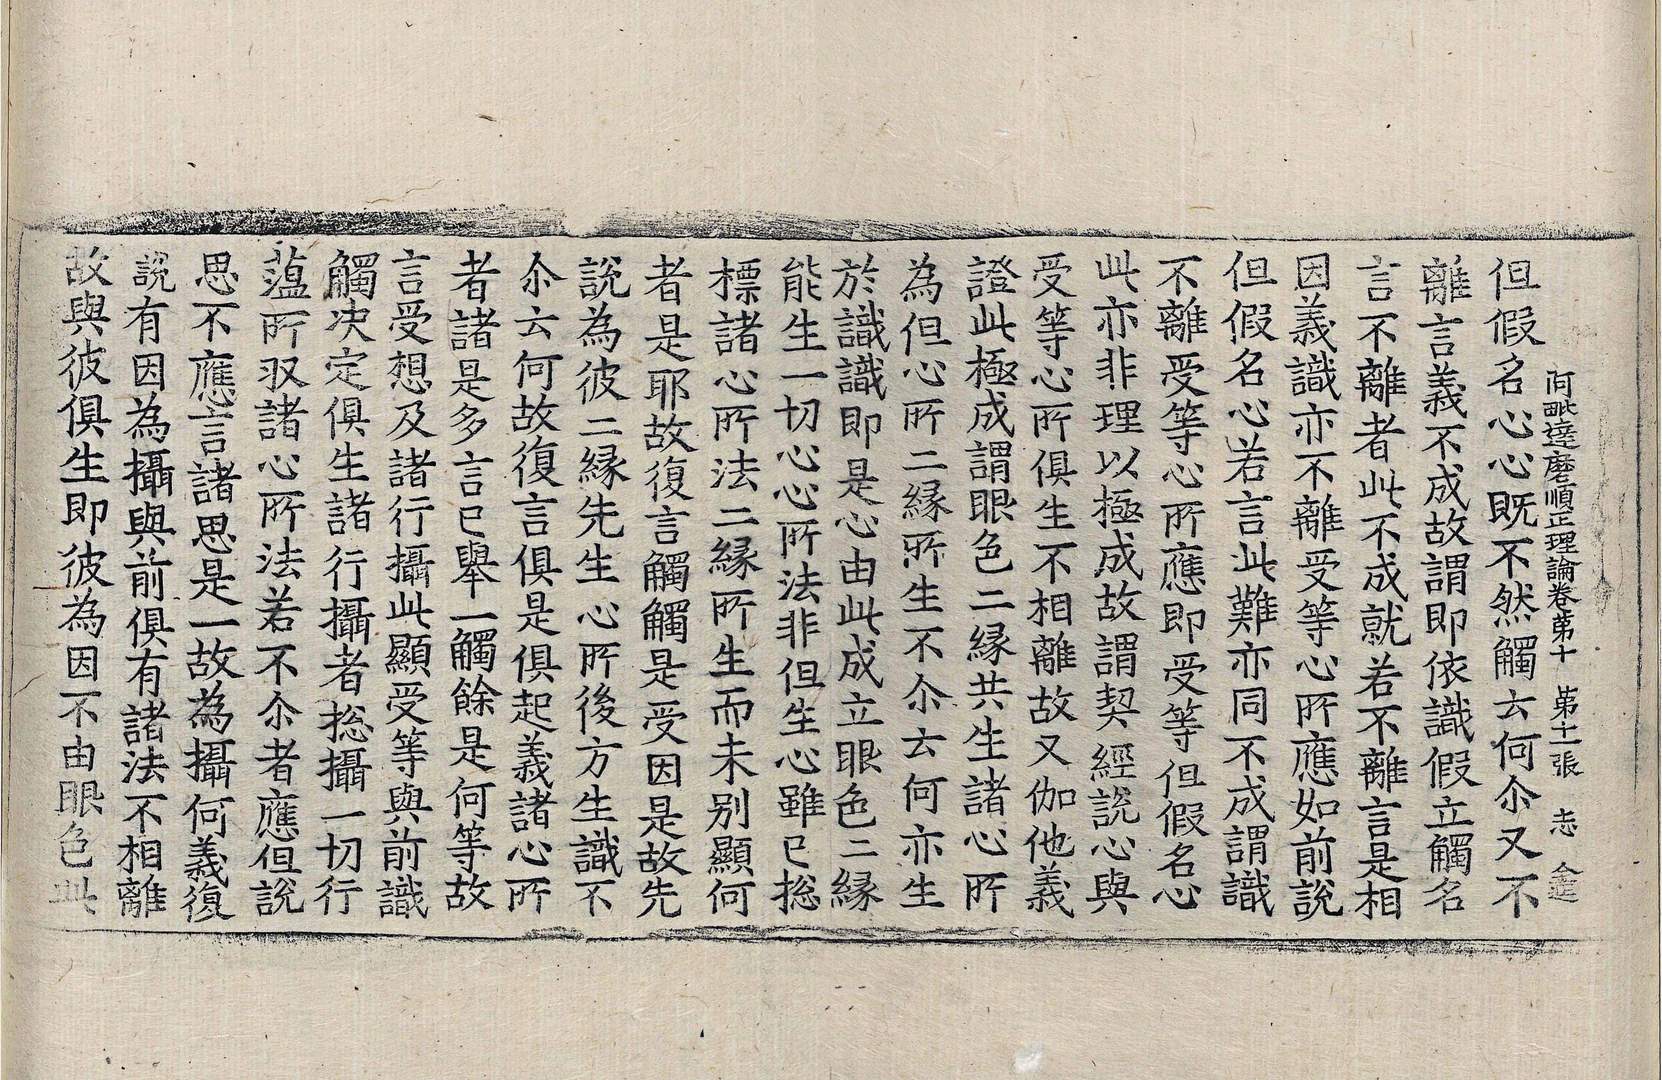 阿毗達磨順正理論卷第十　第十一張　志
但假名心心既不然觸云何尒又不
離言義不成故謂即依識假立觸名
言不離者此不成就若不離言是相
因義識亦不離受等心所應如前說
但假名心若言此難亦同不成謂識
不離受等心所應即受等但假名心
此亦非理以極成故謂契經說心與
受等心所俱生不相離故又伽他義
證此極成謂眼色二緣共生諸心所
為但心所二緣所生不尒云何亦生
於識識即是心由此成立眼色二緣
能生一切心心所法非但生心雖已捴
標諸心所法二緣所生而未別顯何
者是耶故復言觸觸是受因是故先
說為彼二緣先生心所後方生識不
尒云何故復言俱是俱起義諸心所
者諸是多言已舉一觸餘是何等故
言受想及諸行攝此顯受等與前識
觸决定俱生諸行攝者捴攝一切行
薀所収諸心所法若不尒者應但說
思不應言諸思是一故為攝何義復
說有因為攝與前俱有諸法不相離
故與彼俱生即彼為因不由眼色此